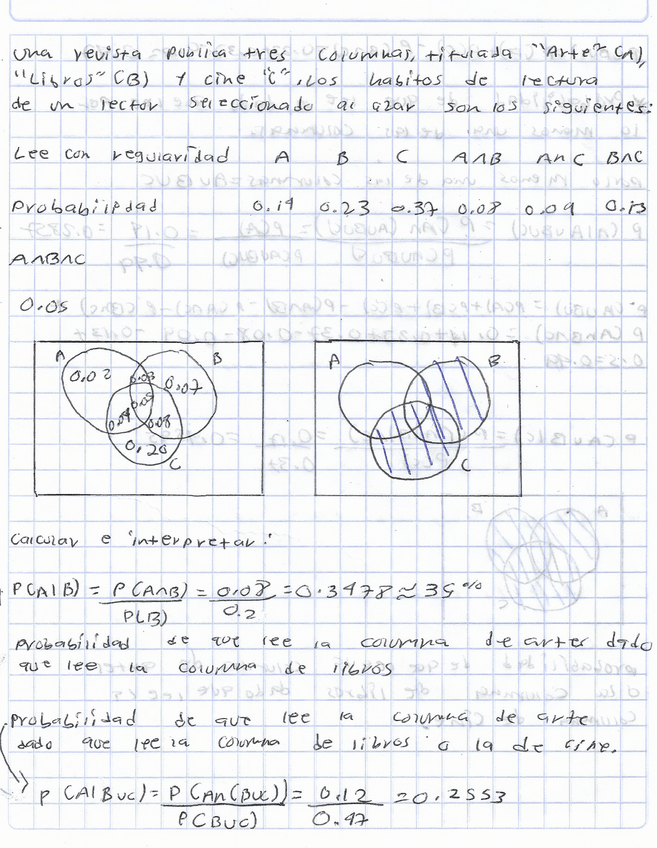 una revista publica tres columnas, titulada "Arte" (A),
"Libros" (B) y cine "C". Los habitos de lectura
de un lector seleccionado al azar son los siguientes:
Lee con regularidad A B C A∩B A∩C B∩C
Probabilidad 0.14 0.23 0.37 0.08 0.09 0.13
A∩B∩C
0.05
A B
0.02 0.03 0.07
0.05
0.04 0.08
0.20
C
A B
C
Calcular e interpretar:
P(A|B) = P(A∩B) = 0.08 = 0.3478 ≈ 35%
P(B) 0.2
probabilidad de que lee la columna de artes dado
que lee la columna de libros
Probabilidad de que lee la columna de arte
dado que lee la columna de libros o la de cine.
P(A|BUC) = P(A∩(BUC)) = 0.12 = 0.2553
P(BUC) 0.47